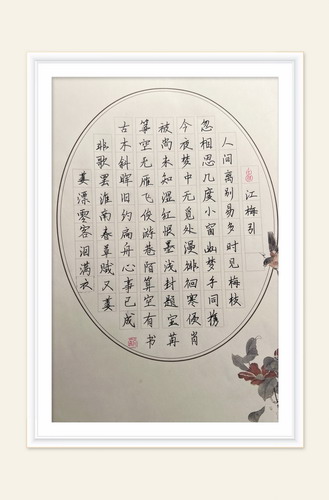 江梅引
人间离别易多时见梅枝
忽相思几度小窗幽梦手同携
今夜梦中无觅处漫徘徊寒侵肖
被尚未知湿红恨墨浅封题宝苒
筝空无雁飞俊游巷陌算空有书
古木斜晖旧约扁舟心事已成
非歌罢淮南春草赋又萋
萋漂零客泪满衣